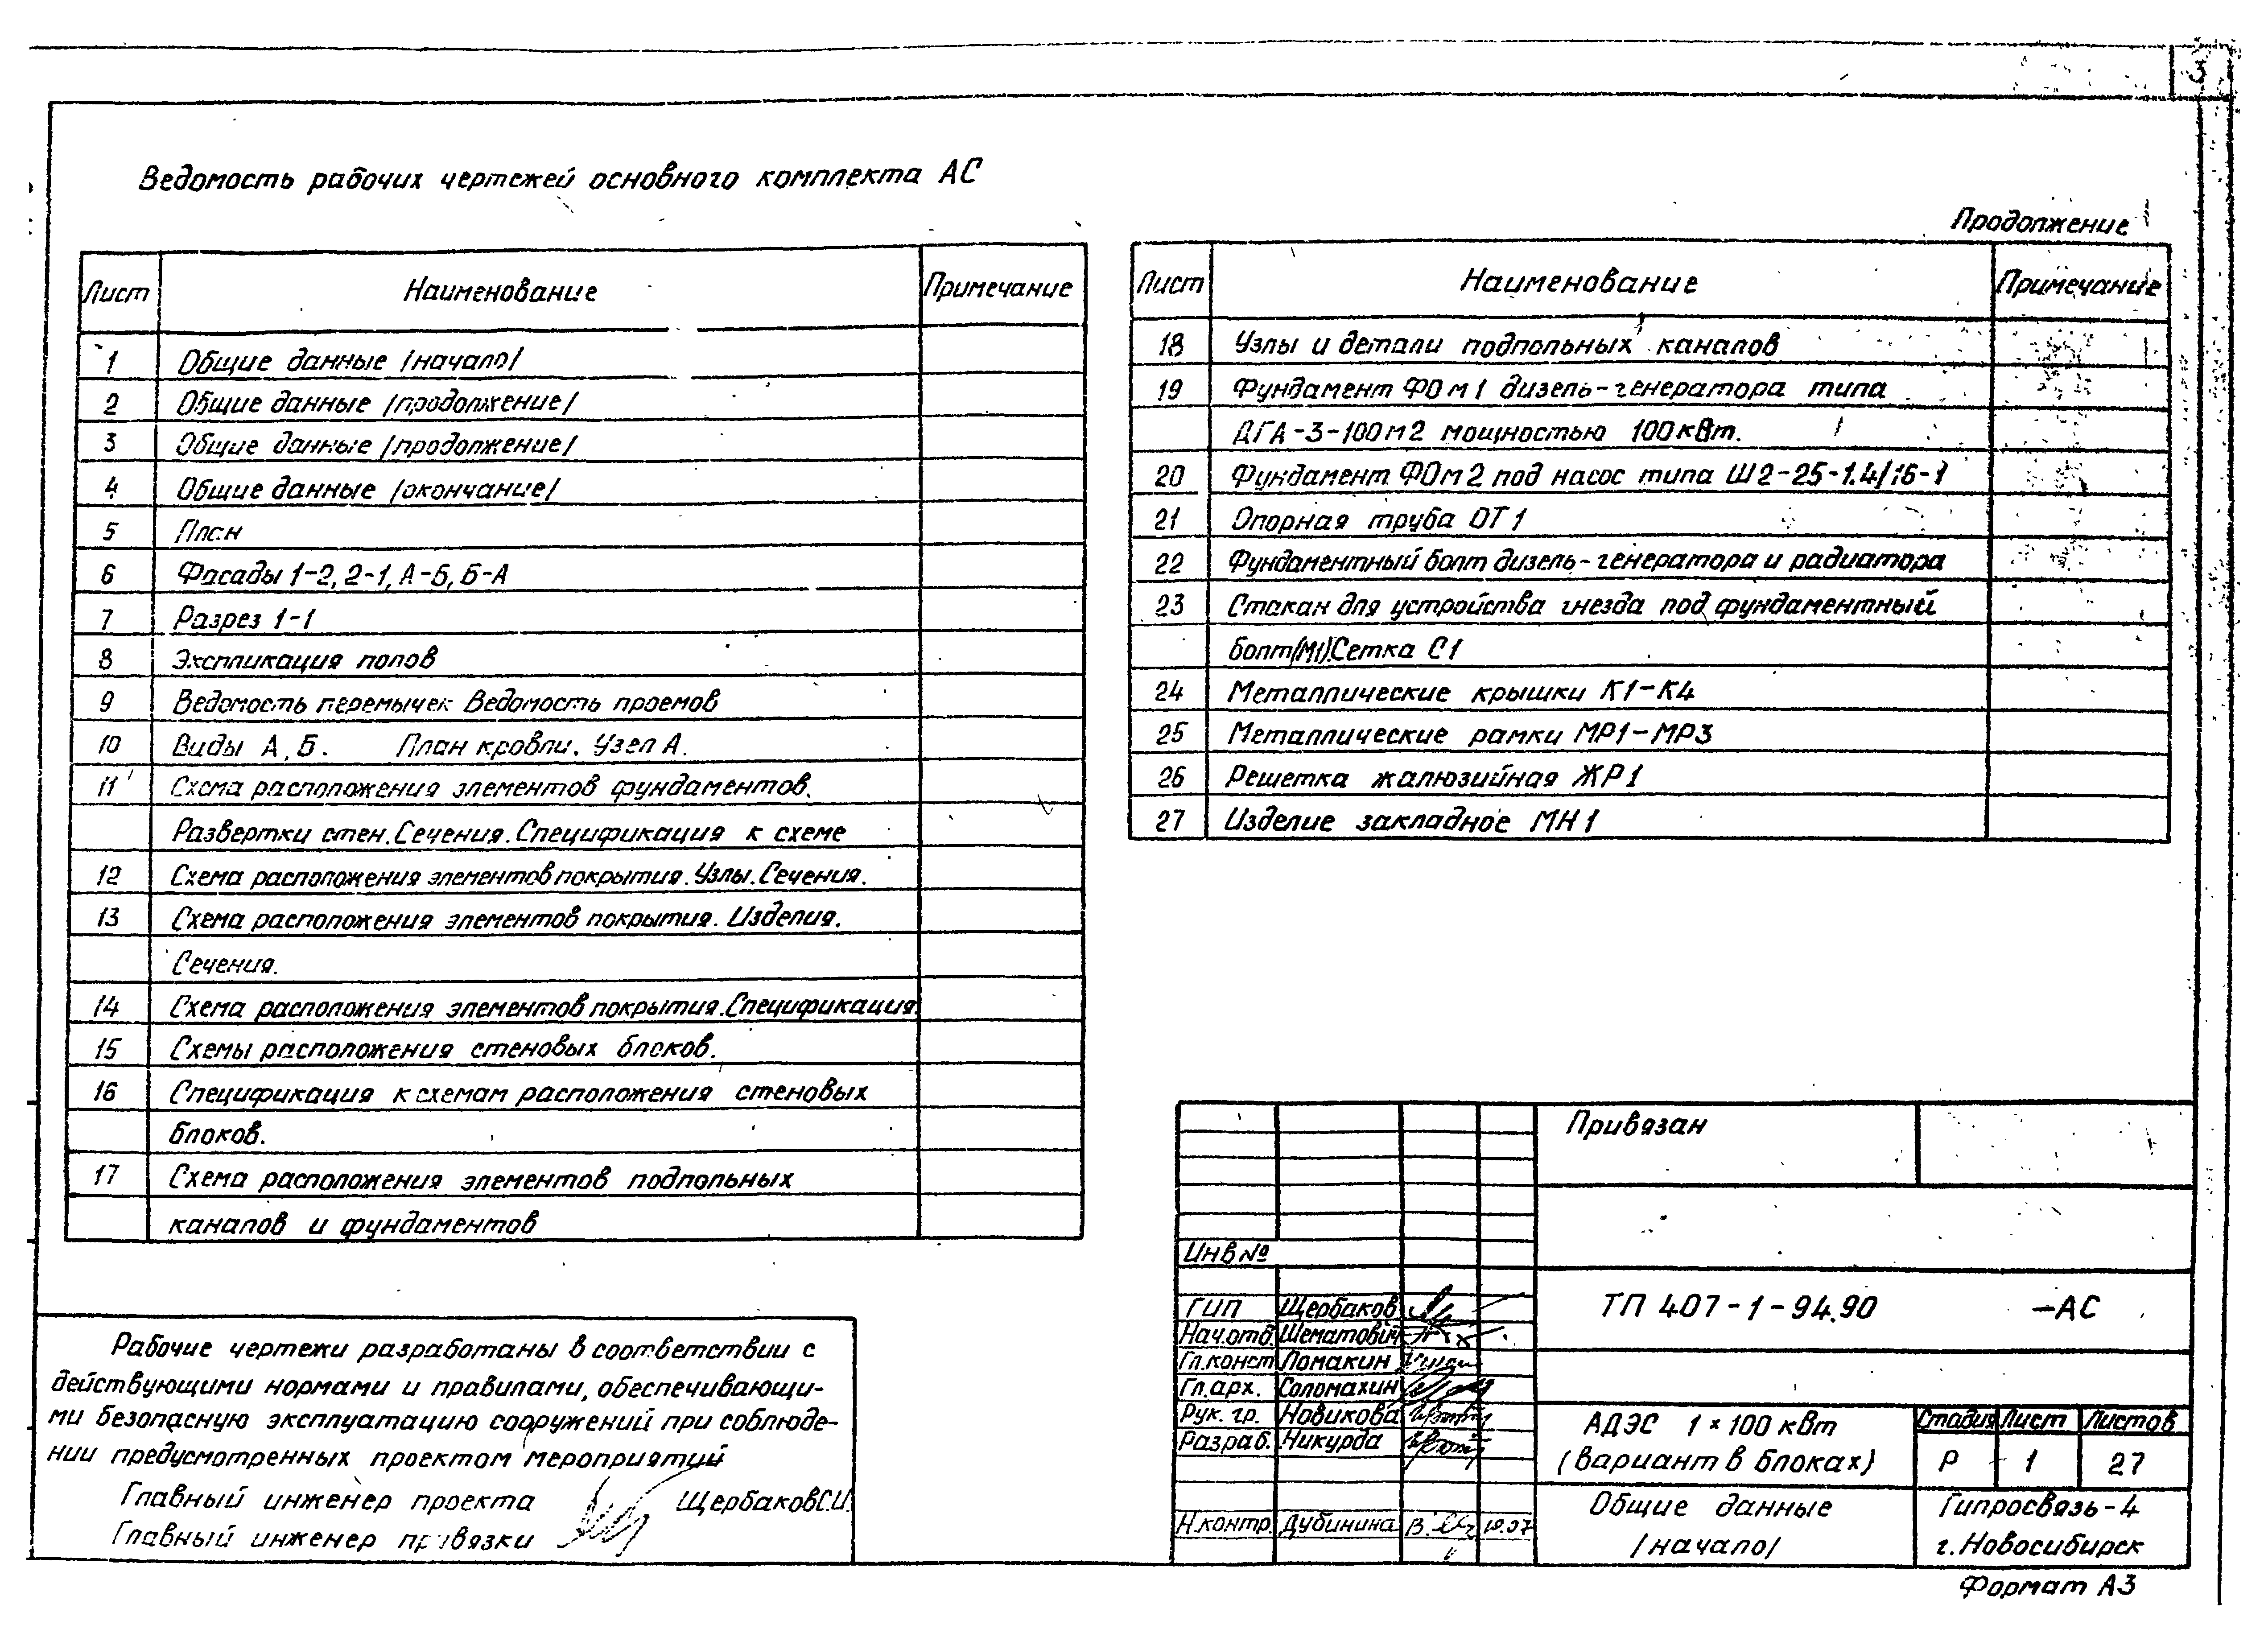 3
Ведомость рабочих чертежей основного комплекта АС
Лист Наименование Примечание
1 Общие данные /начало/
2 Общие данные /продолжение/
3 Общие данные /продолжение/
4 Общие данные /окончание/
5 План
6 Фасады 1-2, 2-1, А-Б, Б-А
7 Разрез 1-1
8 Экспликация полов
9 Ведомость перемычек Ведомость проемов
10 Виды А, Б. План кровли. Узел А.
11 Схема расположения элементов фундаментов.
Развертки стен. Сечения. Спецификация к схеме
12 Схема расположения элементов покрытия. Узлы. Сечения.
13 Схема расположения элементов покрытия. Изделия.
Сечения.
14 Схема расположения элементов покрытия. Спецификация.
15 Схемы расположения стеновых блоков.
16 Спецификация к схемам расположения стеновых
блоков.
17 Схема расположения элементов подпольных
каналов и фундаментов
Продолжение
Лист Наименование Примечание
18 Узлы и детали подпольных каналов
19 Фундамент ФОм1 дизель-генератора типа
ДГА-3-100м2 мощностью 100кВт.
20 Фундамент ФОм2 под насос типа Ш2-25-1.4/16-1
21 Опорная труба ОТ1
22 Фундаментный болт дизель-генератора и радиатора
23 Стакан для устройства гнезда под фундаментный
болт(М1).Сетка С1
24 Металлические крышки К1-К4
25 Металлические рамки МР1-МР3
26 Решетка жалюзийная ЖР1
27 Изделие закладное МН1
Рабочие чертежи разработаны в соответствии с
действующими нормами и правилами, обеспечивающи-
ми безопасную эксплуатацию сооружений при соблюде-
нии предусмотренных проектом мероприятий
Главный инженер проекта Щербаков С.И.
Главный инженер привязки
Привязан
Инв №
ГИП Щербаков
Нач.отд. Шематович
Гл.конст Ломакин
Гл.арх. Соломахин
Рук. гр. Новикова
Разраб. Никурда
Н.контр. Дубинина
ТП 407-1-94.90 -АС
АДЭС 1×100 кВт
(вариант в блоках)
Стадия Лист Листов
Р 1 27
Общие данные
/начало/
Гипросвязь-4
г.Новосибирск
Формат А3